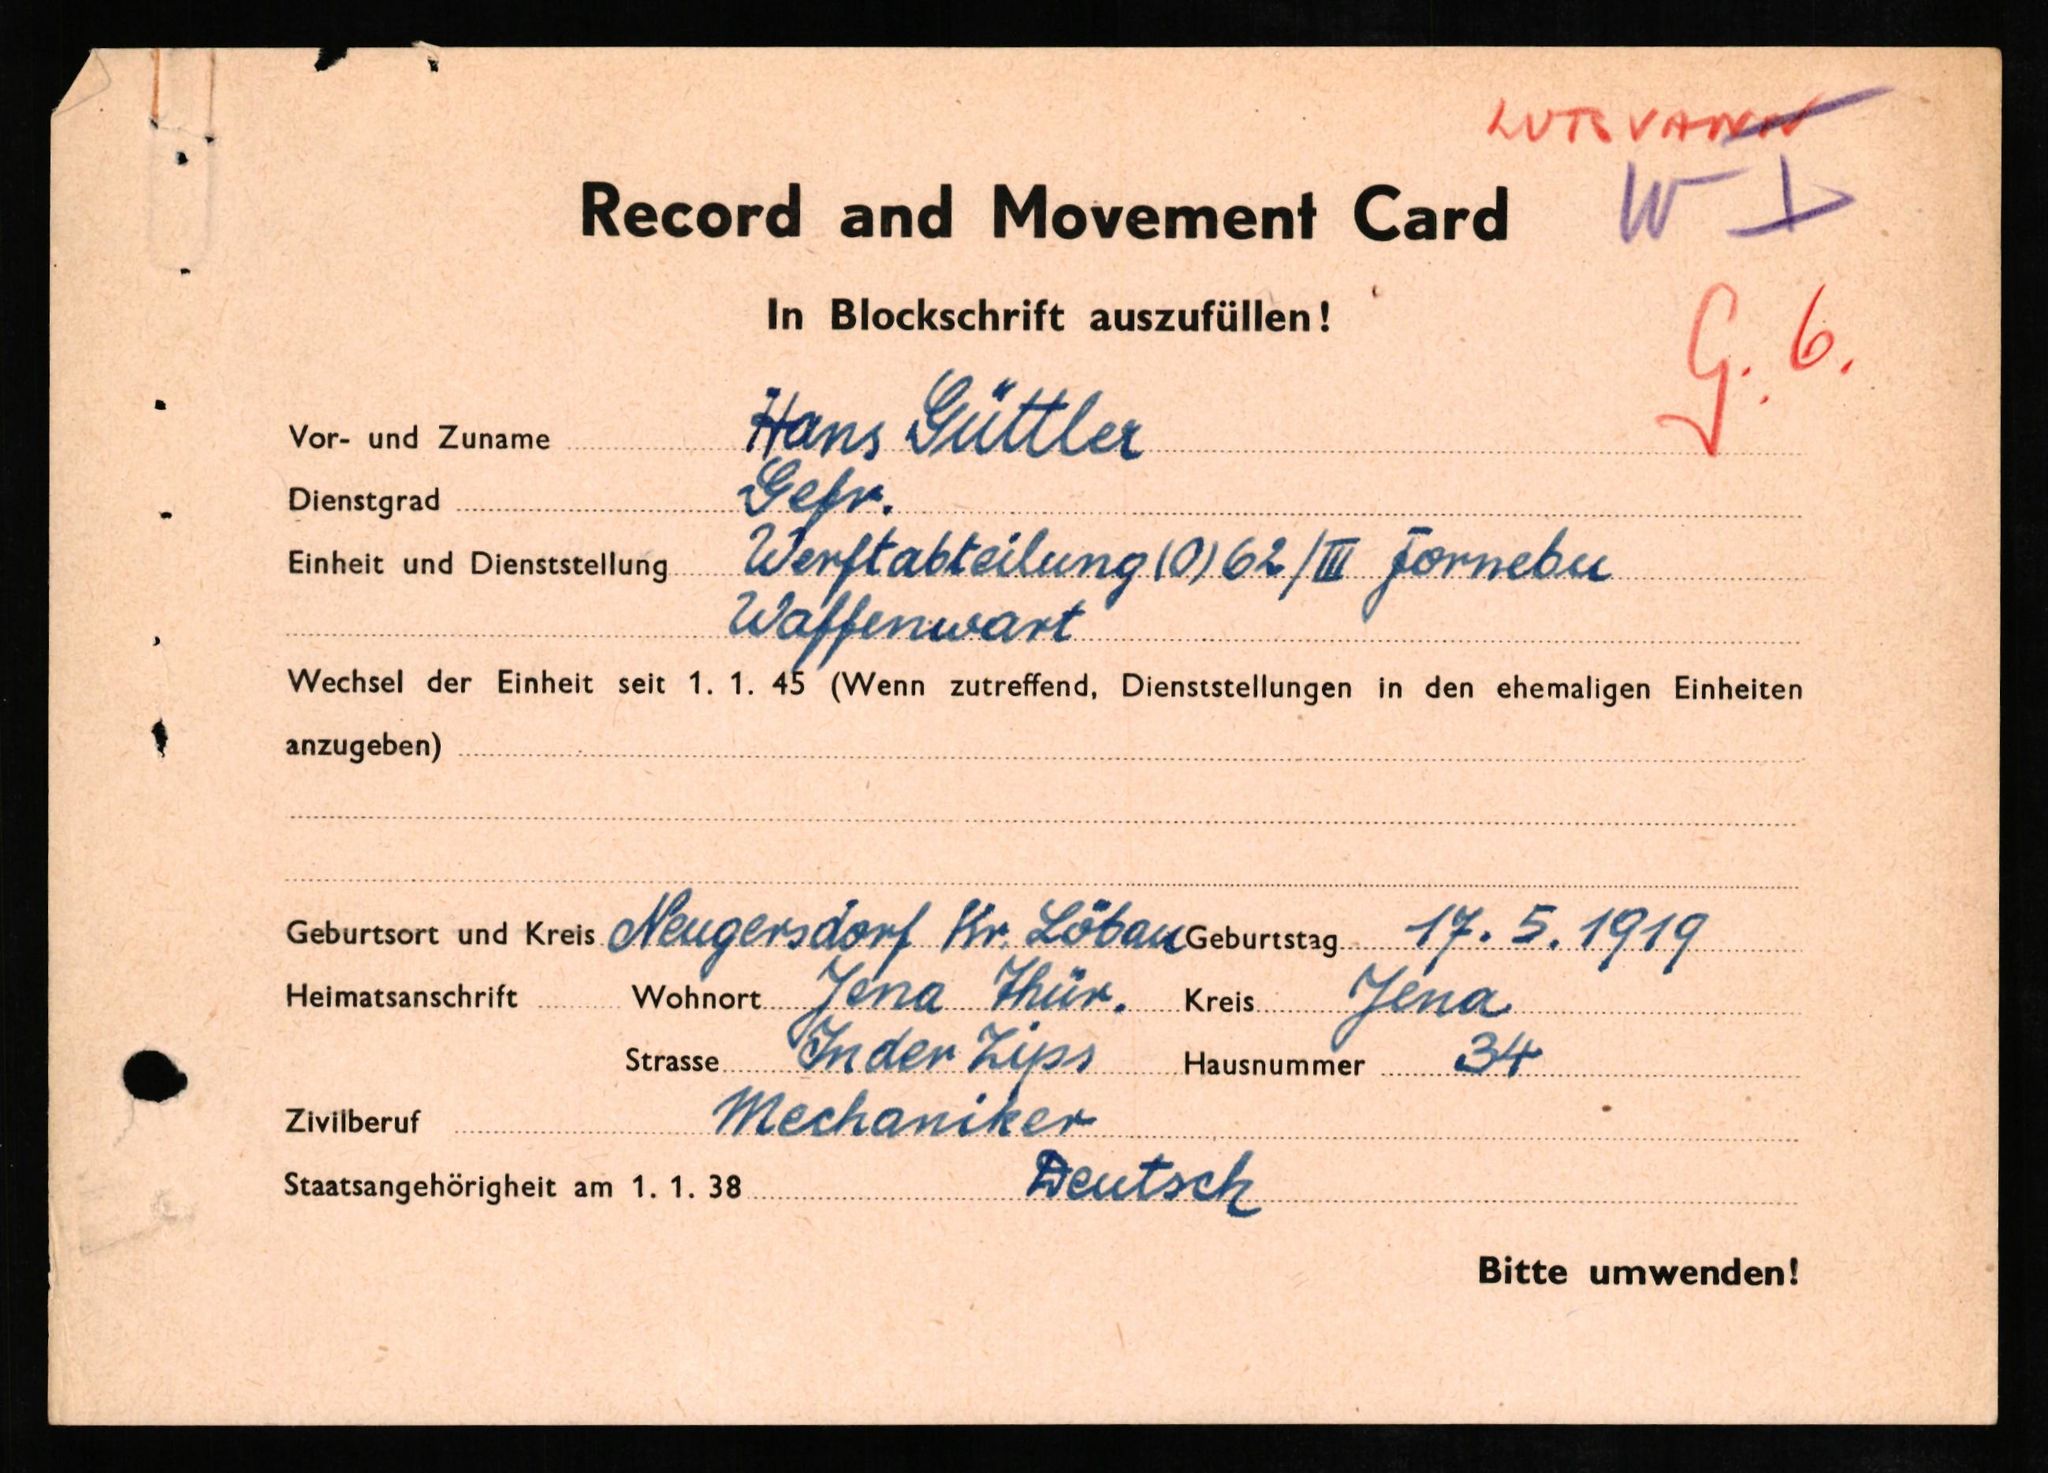 LUTVANN
W I
Record and Movement Card
In Blockschrift auszufüllen!
G. 6.
Vor- und Zuname Hans Güttler
Dienstgrad Gefr.
Einheit und Dienststellung Werftabteilung (O) 62/III Fornebu
Waffenwart
Wechsel der Einheit seit 1. 1. 45 (Wenn zutreffend, Dienststellungen in den ehemaligen Einheiten
anzugeben)
Geburtsort und Kreis Neugersdorf Kr. Löbau Geburtstag 17. 5. 1919
Heimatsanschrift Wohnort Jena Thür. Kreis Jena
Strasse In der Zips Hausnummer 34
Zivilberuf Mechaniker
Staatsangehörigheit am 1. 1. 38 Deutsch
Bitte umwenden!